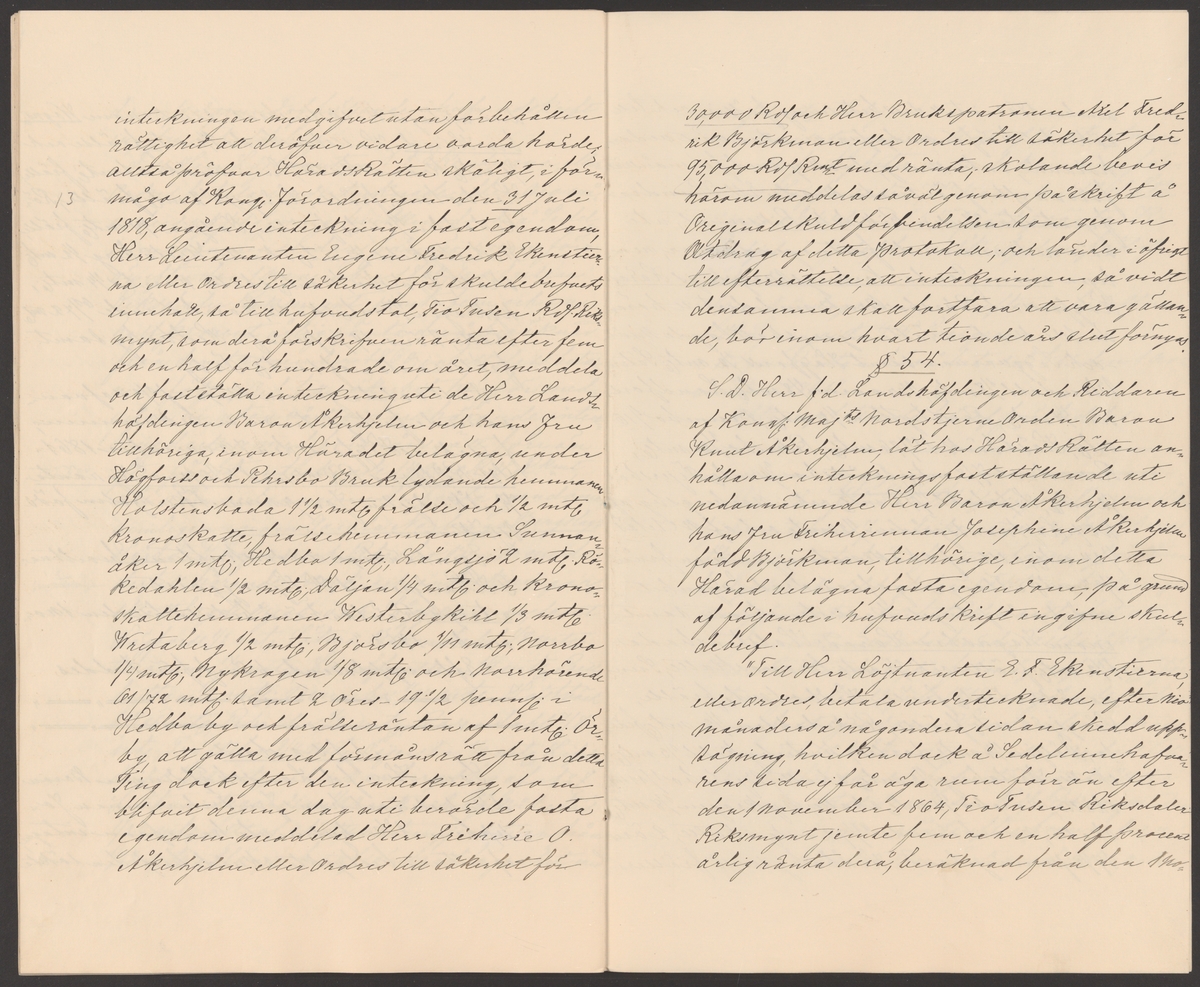 inteckningen medgifvet utan förbehållen
rättighet att deröfver vidare varda hörde;
alltså pröfvar HäradsRätten skäligt, i för-
13
mågo af Kongl. Förordningen den 31 Juli
1818, angående inteckning i fast egendom,
Herr Lieutenanten Eugene Fredrik Ekenstier-
na eller Ordres till säkerhet för skuldebrefvets
innehåll, så till hufvudstol, Tio Tusen Rdr Riks-
mynt, som derå förskrifven ränta efter fem
och en half för hundrade om året, meddela
och fastställa inteckning uti de Herr Lands-
höfdingen Baron Åkerhjelm och hans Fru
tillhöriga, inom Häradet belägna, under
Högforss och Rhrsbo Bruk lydande hemmanen
Holstensboda 1 1/2 mtl; frälse och 1/2 mtl;
kronoskatte, frälsehemmanen Sunnan-
åker 1 mtl; Hedbo 1 mtl; Långsjö 2 mtl; Rö-
kedahlen 1/2 mtl; Däljan 1/4 mtl; och krono-
skattehemmanen Westerbykihl 1/3 mtl;
Wretaberg 1/2 mtl; Björsbo 1/11 mtl; Norrbo
1/4 mtl; Nykrogen 1/8 mtl; och Norrhörende
61/72 mtl; samt 2 öres 19 1/2 penn; i
Hedbo by och frälseräntan af 1 mtl; Ör-
by, att gälla med förmånsrätt från detta
Ting dock efter den inteckning, som
blifvit denna dag uti berörde fasta
egendom meddelad Herr Friherre O.
Åkerhjelm eller Ordres till säkerhet för
30,000 Rdr och Herr Brukspatronen Axel Fred-
rik Björkman eller Ordres till säkerhet för
95,000 Rdr Rmt med ränta; skolande bevis
härom meddelas såväl genom påskrift å
Originalskuldförbindelsen som genom
Utdrag af detta Protokoll; och länder i öfrigt
till efterrättelse, att inteckningen, så vidt
densamma skall fortfara att vara gällan-
de, bör inom hvart tionde års slut förnyas.
§ 54.
S. D. Herr f:d Landshöfdingen och Riddaren
af Kongl. Majts Nordstjerne Orden Baron
Knut Åkerhjelm, låt hos HäradsRätten an-
hålla om inteckningsfastställande uti
nedannämnde Herr Baron Åkerhjelm och
hans Fru Friherrinnan Josephine Åkerhjelm
född Björkman, tillhörige, inom detta
Härad belägna fasta egendom, på grund
af följande i hufvudskrift ingifne skul-
debref.
"Till Herr Löjtnanten E. F. Ekenstierna,
eller Ordres, betala undertecknade, efter nio
månaders å någondera sidan skedd upp-
sägning, hvilken dock å Sedelinnehafva-
rens sida ej får äga rum förr än efter
den 1 November 1864, Tio Tusen Riksdaler
Riksmynt jemte fem och en half procent
årlig ränta derå, beräknad från den 1 No-